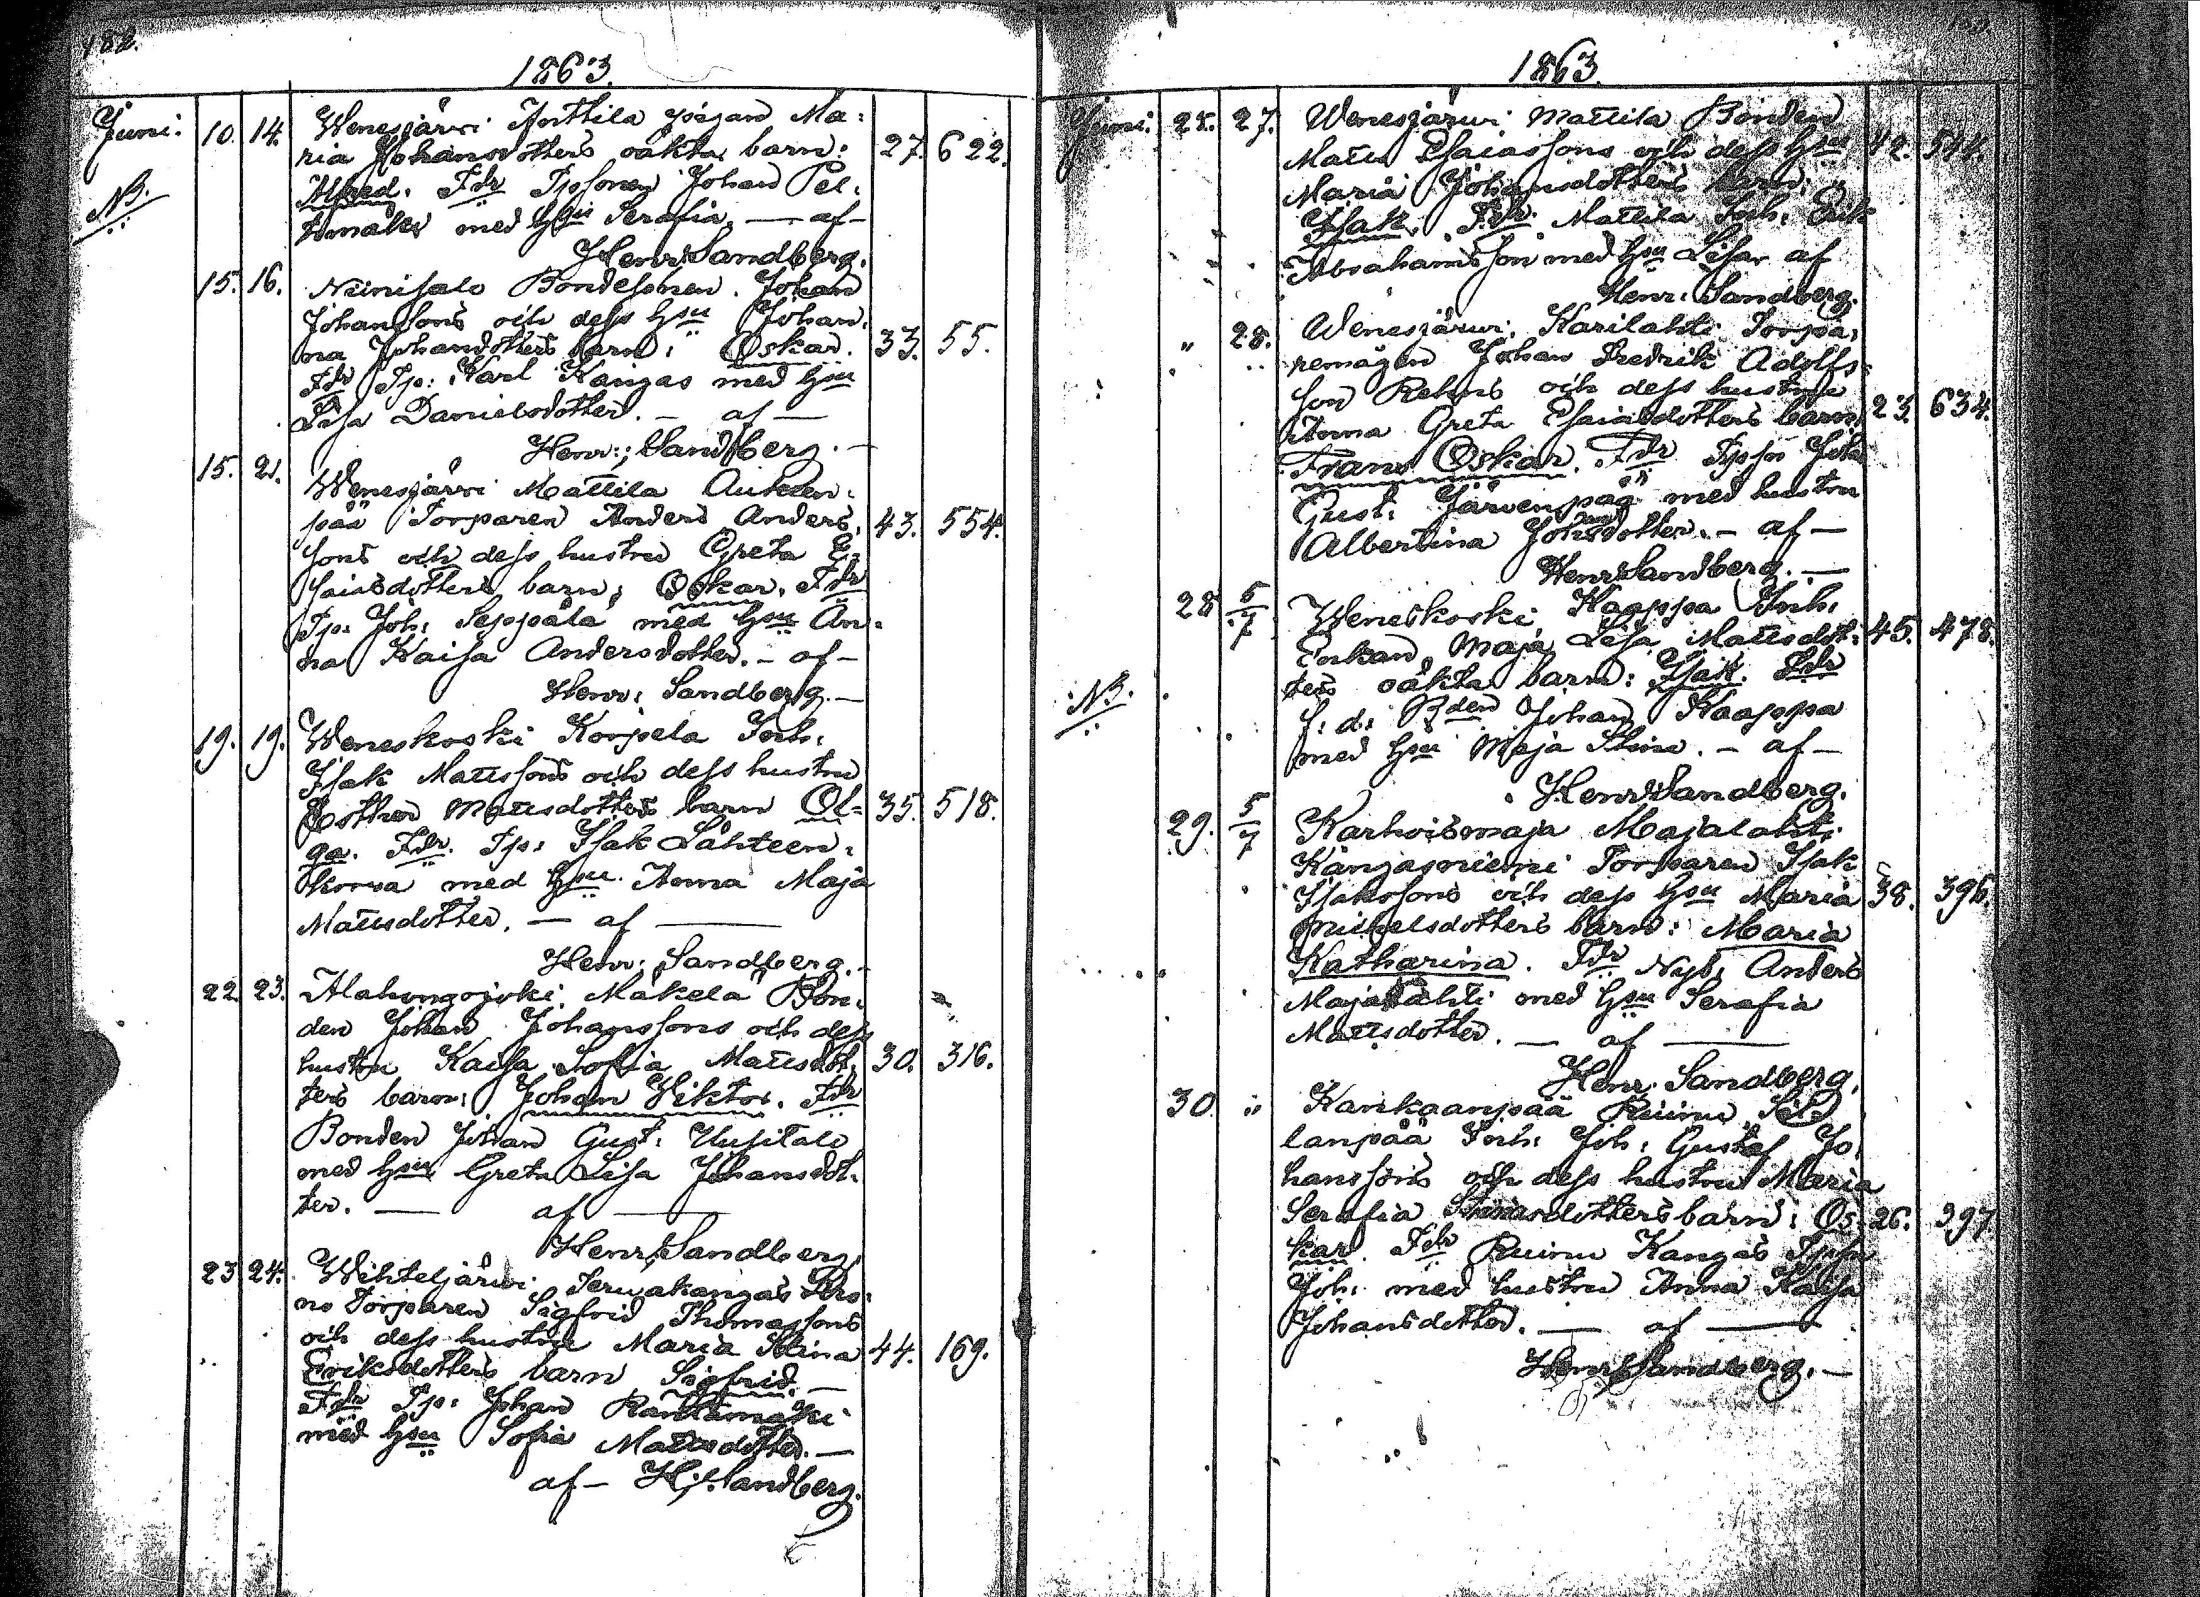 182.
1863.
Juni. 10. 14. Wenesjärvi Anttila pigan Ma:
ria Johansdotters oäkta barn: 27. 622.
NB. Alfred. Fdr Tpsonen Johan Pel:
tomäki med hsu Serafia. — af —
Henr: Sandberg.
15. 16. Niinisalo Bondesonen Johan
Johanssons och dess hsu Johan:
na Johansdotters barn: Oskar. 33. 55.
Fdr Tp: Karl Kangas med hsu
Lisa Danielsdotter. — af —
Henr: Sandberg. —
15. 21. Wenesjärvi Mattila Auteen:
pää Torparen Anders Anders: 43. 554.
sons och dess hustru Greta E:
saiasdotters barn: Oskar. Fdr
Tp: Joh: Seppälä med hsu An:
na Kaisa Andersdotter. — af —
Henr: Sandberg. —
19. 19. Weneskoski Korpela Inh:
Isak Mattssons och dess hustru
Esther Mattsdotters barn Ol= 35. 518.
ga. Fdr. Tp: Isak Lähteen:
korva med hsu. Anna Maja
Mattsdotter. — af —
Henr: Sandberg. —
22. 23. Alahongojoki Mäkelä Bon:
den Johan Johanssons och dess
hustru Kaisa Sofia Mattsdot: 30. 316.
ters barn: Johan Viktor. Fdr
Bonden Johan Gust: Uusitalo
med hsu Greta Lisa Johansdot:
ter. — af —
Henr: Sandberg.
23 24. Wihteljärvi Teruakangas
no Torparen Sigfrid Thomassons
och dess hustru Maria Stina 44. 169.
Eriksdotters barn Sigfrid. —
Fdr Tp: Johan Rantamäki
med hsu Sofia Mattsdotter. —
af — H: Sandberg.
1863.
Juni. 25. 27. Wenesjärvi Mattila Bonden
Matts Esaiassons och dess hsu 42. 544.
Maria Johansdotters barn:
Isak. Fdr. Mattila Inh: Erik
Abrahamsson med hsu Lisa. af
Henr: Sandberg.
" 28. Wenesjärvi Karilahti Torpa:
remågen Johan Fredrik Adolfs=
son Rehns och dess hustru
Anna Greta Esaiasdotters barn: 23. 634.
Frans Oskar. Fdr Tpsn Joh:
Gust: Järvenpää med hustru
Albertina Johansdotter. — af —
Henr: Sandberg. —
28 5/7 Weneskoski Kaappa Inh:
Enkan Maja Lisa Mattsdot: 45. 478.
ters oäkta barn: Isak. Fdr
NB. f: d: Bden Johan Kaappa
med hsu Maja Stina. — af —
Henr: Sandberg.
29. 5/7 Karhoismaja Majalahti
Kangasniemi Torparen Isak
Isakssons och dess hsu Maria 38. 396.
Michelsdotters barn: Maria
Katharina. Fdr Nyb: Anders
Majalahti med hsu Serafia
Mattsdotter. — af —
Henr: Sandberg.
30 " Kankaanpää Ruinu Sil
lanpää Inh: Joh: Gustaf Jo:
hanssons och dess hustru Maria
Serafia dotters barn: Os: 26. 397
kar. Fdr Ruinu Kangas Tpsn
Joh: med hustru Anna Kaisa
Johansdotter. — af —
Henr: Sandberg. —